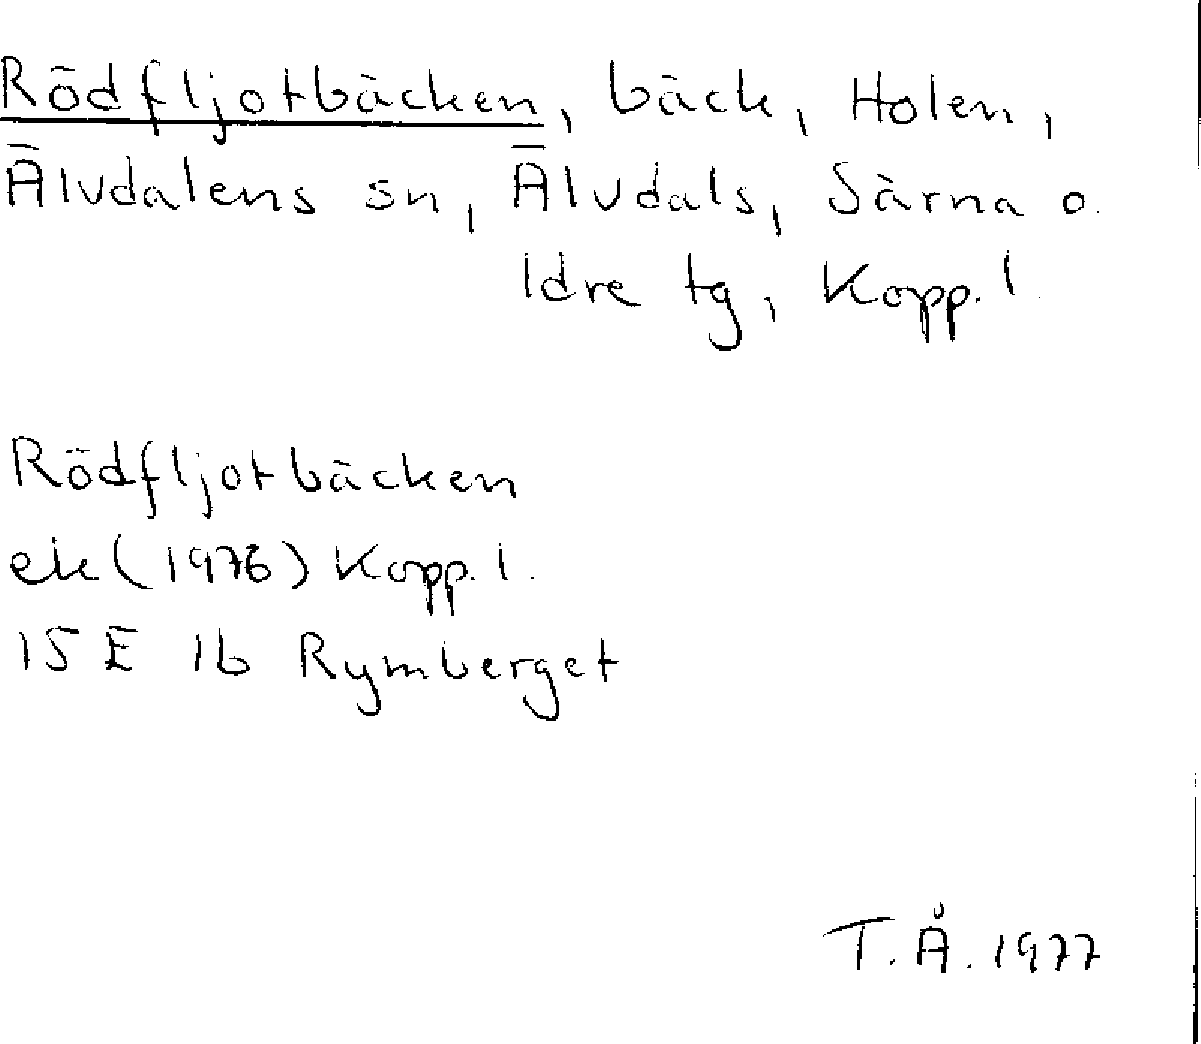 Rödfljotbäcken, bäck, Holen,
Älvdalens sn, Älvdals, Särna o.
Idre tg, Kopp. l
Rödfljotbäcken
ek (1976) Kopp. l.
15 E 1b Rymberget
T. Å. 1977